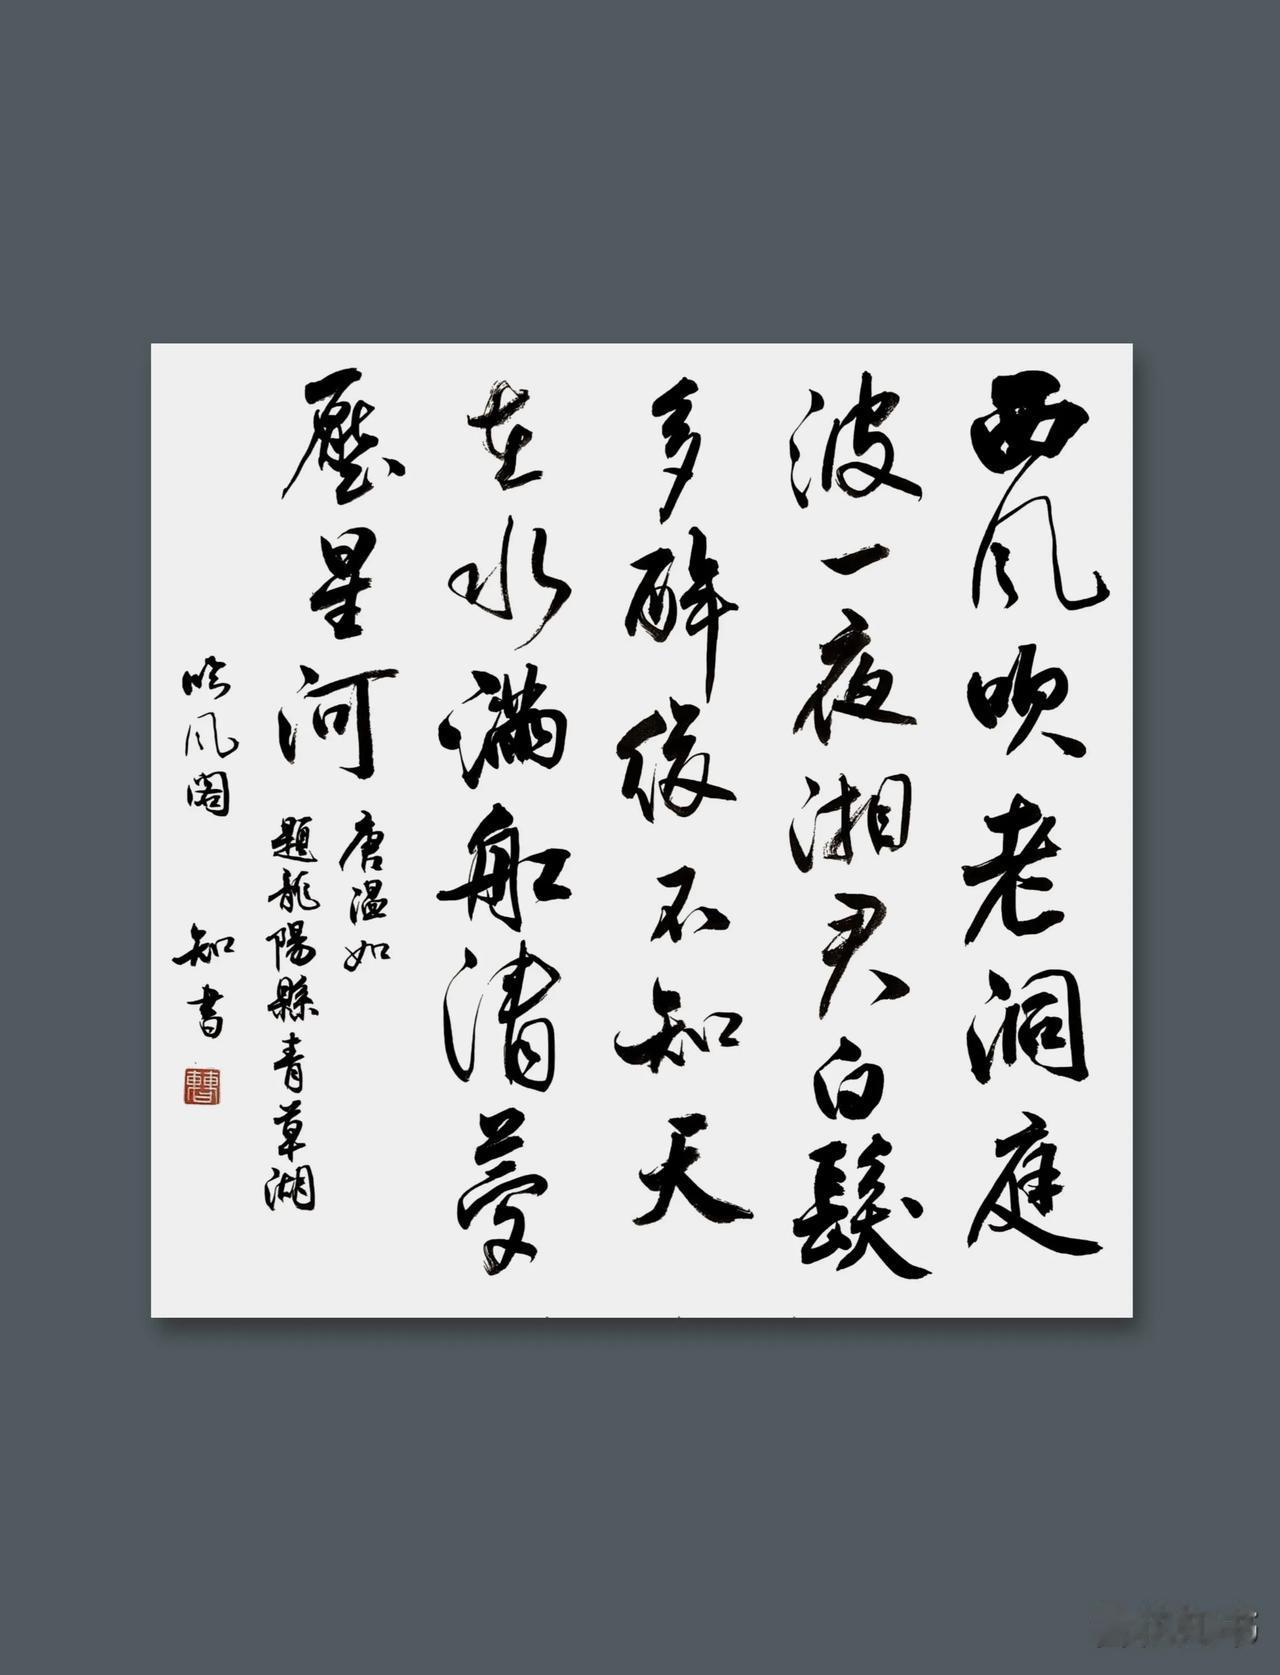 西風吹老洞庭
波一夜湘君白髮
多醉後不知天
在水滿船清夢
壓星河
唐温如
題龍陽縣青草湖
吟风阁
知書